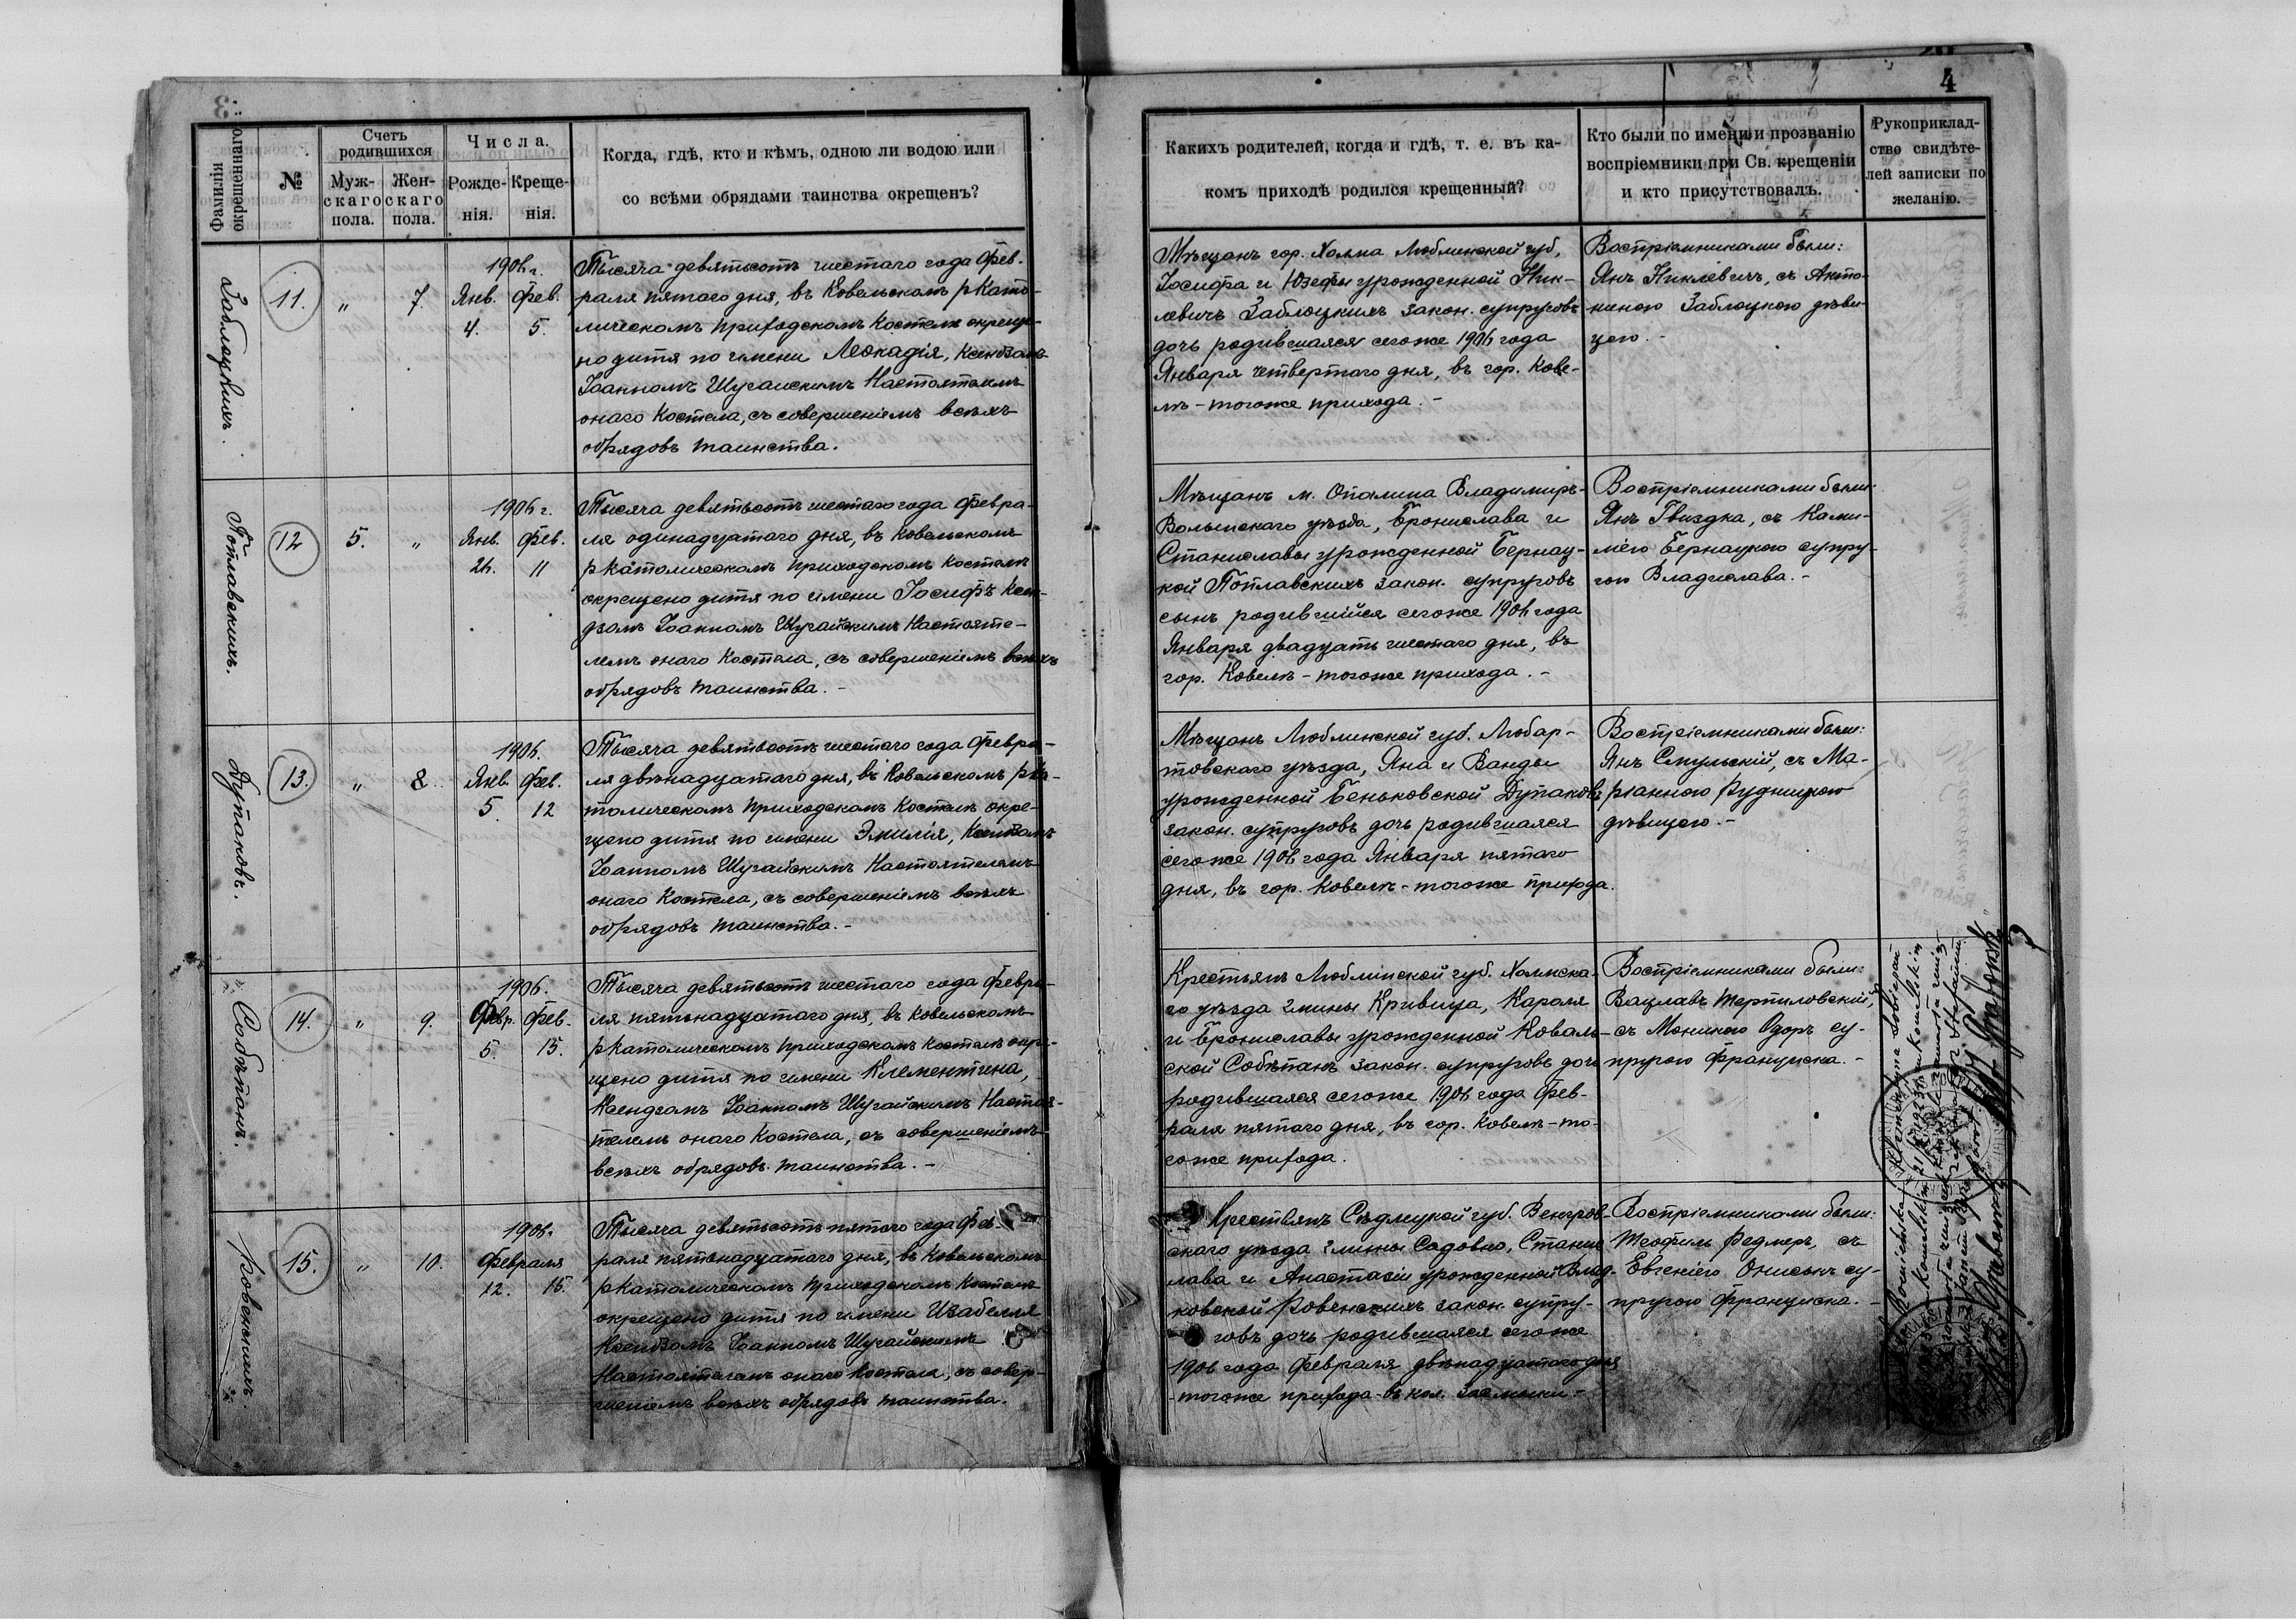 3
Фамилія окрещеннаго:
№
Счетъ родившихся
Муж-
скаго
пола.
Жен-
скаго
пола.
Числа.
Рожде-
нія.
Креще-
нія.
Когда, гдѣ, кто и кѣмъ, одною ли водою или
со всѣми обрядами таинства окрещенъ?
Заблоцкихъ.
11.
"
7.
1906 г.
Янв. Фев.
4. 5.
Тысяча девятьсотъ шестаго года Фев-
раля пятаго дня, въ Ковельскомъ р Като-
лическомъ приходскомъ Костелѣ окреще-
но дитя по имени Леокадія, Ксендзомъ
Іоанномъ Шугайскимъ Настоятелемъ
онаго Костела, съ совершеніемъ всѣхъ
обрядовъ таинства.
Поплавскихъ.
12
5.
"
1906 г.
Янв. Фев.
26. 11
Тысяча девятьсотъ шестаго года Февра-
ля одинадцатаго дня, въ Ковельскомъ
р Католическомъ приходскомъ Костелѣ
окрещено дитя по имени Іосифъ Ксен-
дзомъ Іоанномъ Шугайскимъ Настояте-
лемъ онаго Костела, съ совершеніемъ всѣхъ
обрядовъ таинства. -
Дупаковъ.
13.
"
8.
1906.
Янв. Фев.
5. 12
Тысяча девятьсотъ шестаго года Февра-
ля двѣнадцатаго дня, въ Ковельскомъ р Ка-
толическомъ приходскомъ Костелѣ окре-
щено дитя по имени Эмилія, Ксендзомъ
Іоанномъ Шугайскимъ Настоятелемъ
онаго Костела, съ совершеніемъ всѣхъ
обрядовъ таинства. -
Собѣпанъ.
14.
"
9.
1906.
Февр. Фев.
5. 15.
Тысяча девятьсотъ шестаго года Февра-
ля пятьнадцатаго дня, въ Ковельскомъ
р Католическомъ приходскомъ Костелѣ окре-
щено дитя по имени Клементина,
Ксендзомъ Іоанномъ Шугайскимъ Настоя-
телемъ онаго Костела, съ совершеніемъ
всѣхъ обрядовъ таинства. -
Ровенскихъ.
15.
"
10.
1906.
Февраля
12. 15.
Тысяча девятьсотъ пятаго года Фев-
раля пятьнадцатаго дня, въ Ковельскомъ
р Католическомъ приходскомъ Костелѣ
окрещено дитя по имени Изабелля
Ксендзомъ Іоанномъ Шугайскимъ
Настоятелемъ онаго Костела, съ совер-
шеніемъ всѣхъ обрядовъ таинства.
4
Какихъ родителей, когда и гдѣ, т. е. въ ка-
комъ приходѣ родился крещенный?
Кто были по имени и прозванію
воспріемники при Св. крещеніи
и кто присутствовалъ.
Рукоприклад-
ство свидѣте-
лей записки по
желанію.
Мѣщанъ гор. Холма Люблинской губ,
Іосифа и Юзефы урожденной Ник-
левичъ Заблоцкихъ закон. супруговъ
дочь родившаяся сегоже 1906 года
Января четвертаго дня, въ гор. Кове-
лѣ - тогоже прихода. -
Воспріемниками были:
Янъ Никлевичъ, съ Анто-
ниною Заблоцкою дѣви-
цею. -
Мѣщанъ м. Опалина Владимиръ-
Волынскаго уѣзда, Бронислава и
Станиславы урожденной Бернац-
кой Поплавскихъ закон. супруговъ
сынъ родившійся сегоже 1906 года
Января двадцать шестаго дня, въ
гор. Ковелѣ - тогоже прихода. -
Воспріемниками были:
Янъ Гвиздка, съ Ками-
ліею Бернацкою супру-
гою Владислава. -
Мѣщанъ Люблинской губ. Любар-
товскаго уѣзда, Яна и Ванды
урожденной Беньковской Дупаковъ
закон. супруговъ дочь родившаяся
сегоже 1906 года Января пятаго
дня, въ гор. Ковелѣ - тогоже прихода.
Воспріемниками были:
Янъ Слупьскій, съ Ма-
ріанною Рудницкою
дѣвицею. -
Крестьянъ Люблинской губ. Холмска-
го уѣзда гмины Кривица, Кароля
и Брониславы урожденной Коваль-
ской Собѣпанъ закон. супруговъ дочь
родившаяся сегоже 1906 года Фев-
раля пятаго дня, въ гор. Ковелѣ - то-
гоже прихода.
Воспріемниками были:
Вацлавъ Терпиловскій,
съ Моникою Одоръ су-
пругою Франциска. -
Крестьянъ Сѣдлецкой губ. Венгров-
скаго уѣзда гмины Садовно, Станис-
лава и Анастасіи урожденной Влад-
ковской Ровенскихъ закон. супру-
говъ дочь родившаяся сегоже
1906 года Февраля двѣнадцатаго дня
- тогоже прихода - въ кол. Засмыки -
Воспріемниками были:
Теофиль Федлеръ, съ
Евгеніею Онисыкъ су-
пругою Франциска. -